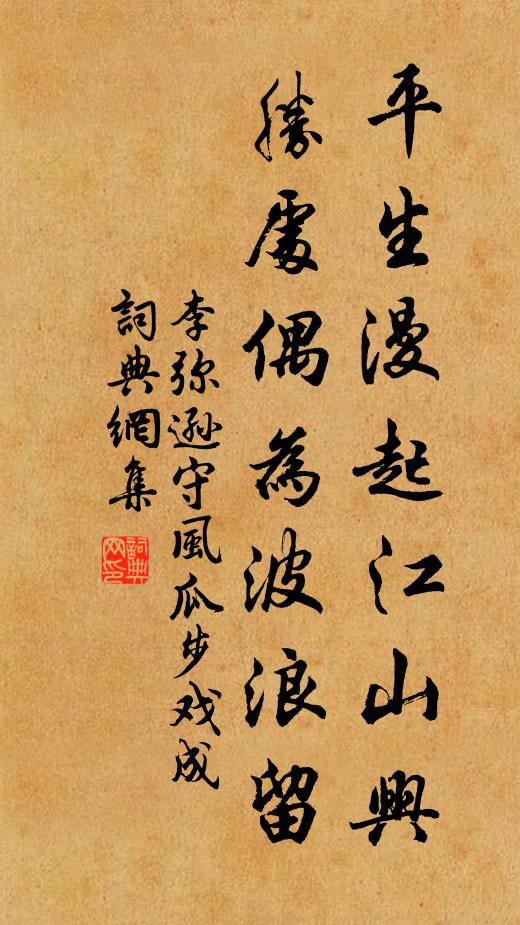 平生漫起江山興
勝處偶為波浪留
李弥遜守風瓜步戏成
詞典網集
詞典网印